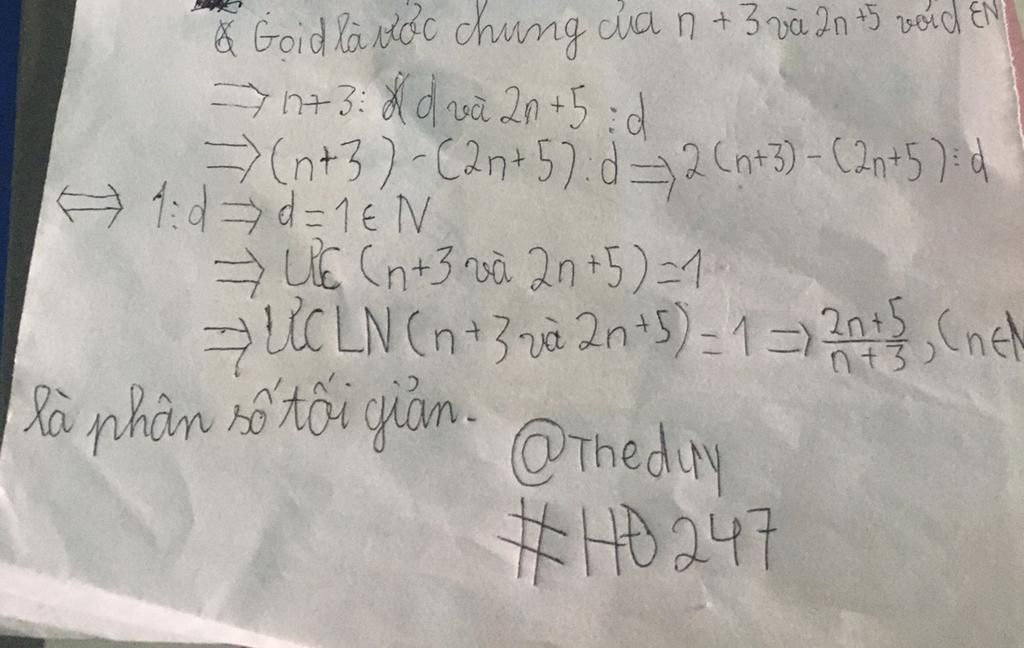 Gọi d là ước chung của n + 3 và 2n + 5 với d ∈ N
⇒ n + 3 ⋮ d và 2n + 5 ⋮ d
⇒ (n+3) - (2n+5) ⋮ d ⇒ 2(n+3) - (2n+5) ⋮ d
⇔ 1 ⋮ d ⇒ d = 1 ∈ N
⇒ ƯC (n+3 và 2n+5) = 1
⇒ ƯCLN (n+3 và 2n+5) = 1 ⇒ \frac{2n+5}{n+3}, (n ∈ N
là phân số tối giản.
@Theduy
#HĐ247